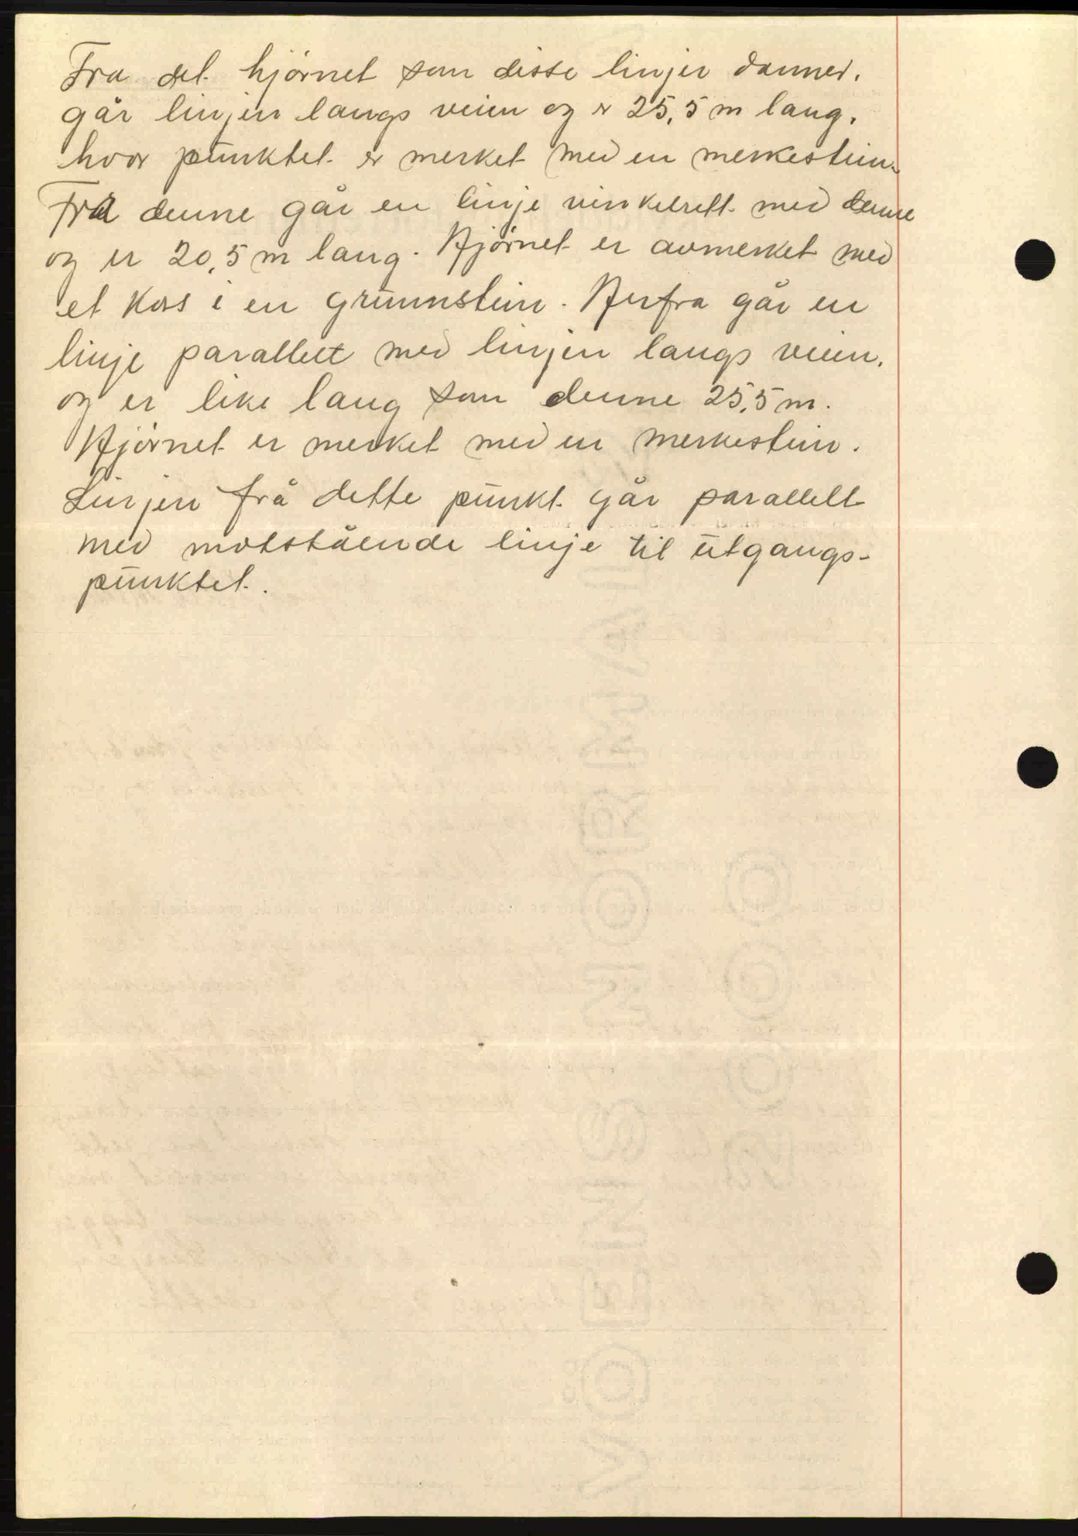 Fra det hjørnet som disse linjer danner,
går linjen langs veien og er 25,5 m lang,
hvor punktet er merket med en merkestein.
Fra denne går en linje vinkelrett med denne
og er 20,5 m lang. Hjørnet er avmerket med
et kors i en grunnstein. Herfra går en
linje parallelt med linjen langs veien,
og er like lang som denne 25,5 m.
Hjørnet er merket med en merkestein.
Linjen frå dette punkt går parallelt
med motstående linje til utgangs-
punktet.